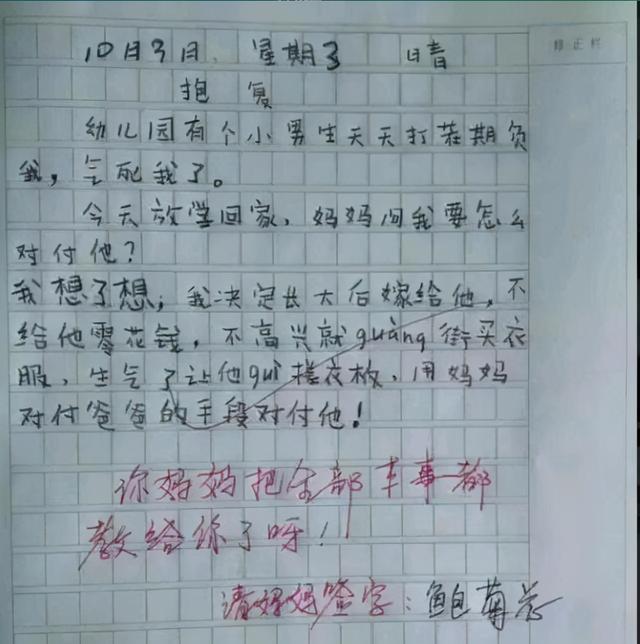 修正栏
10月3日 星期3 晴
抱 复
幼儿园有个小男生天天打苲期负
我，气死我了。
今天放学回家，妈妈问我要怎么
对付他？
我想了想，我决定长大后嫁给他，不
给他零花钱，不高兴就guàng街买衣
服，生气了让他guì搓衣板，用妈妈
对付爸爸的手段对付他！
你妈妈把全部本事都
教给你了呀！
请妈妈签字：鲍菊